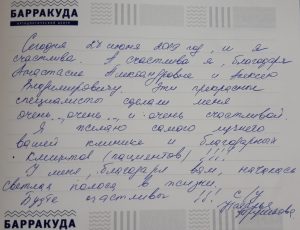 БАРРАКУДА
Сегодня 27 июня 2019 год, и я
счастлива. А счастлива я, благодаря
Анастасие Александровне и Алексею
Владимировичу. Эти прекрасные
специалисты сделали меня
очень, очень, и очень счастливой
Я желаю самого лучшего
вашей клинике и благодарных
клиентов (пациентов) !!!
У меня, благодаря вам, началась
светлая полоса в жизни.
Будьте счастливы !!! с/у
Наталья
БАРРАКУДА